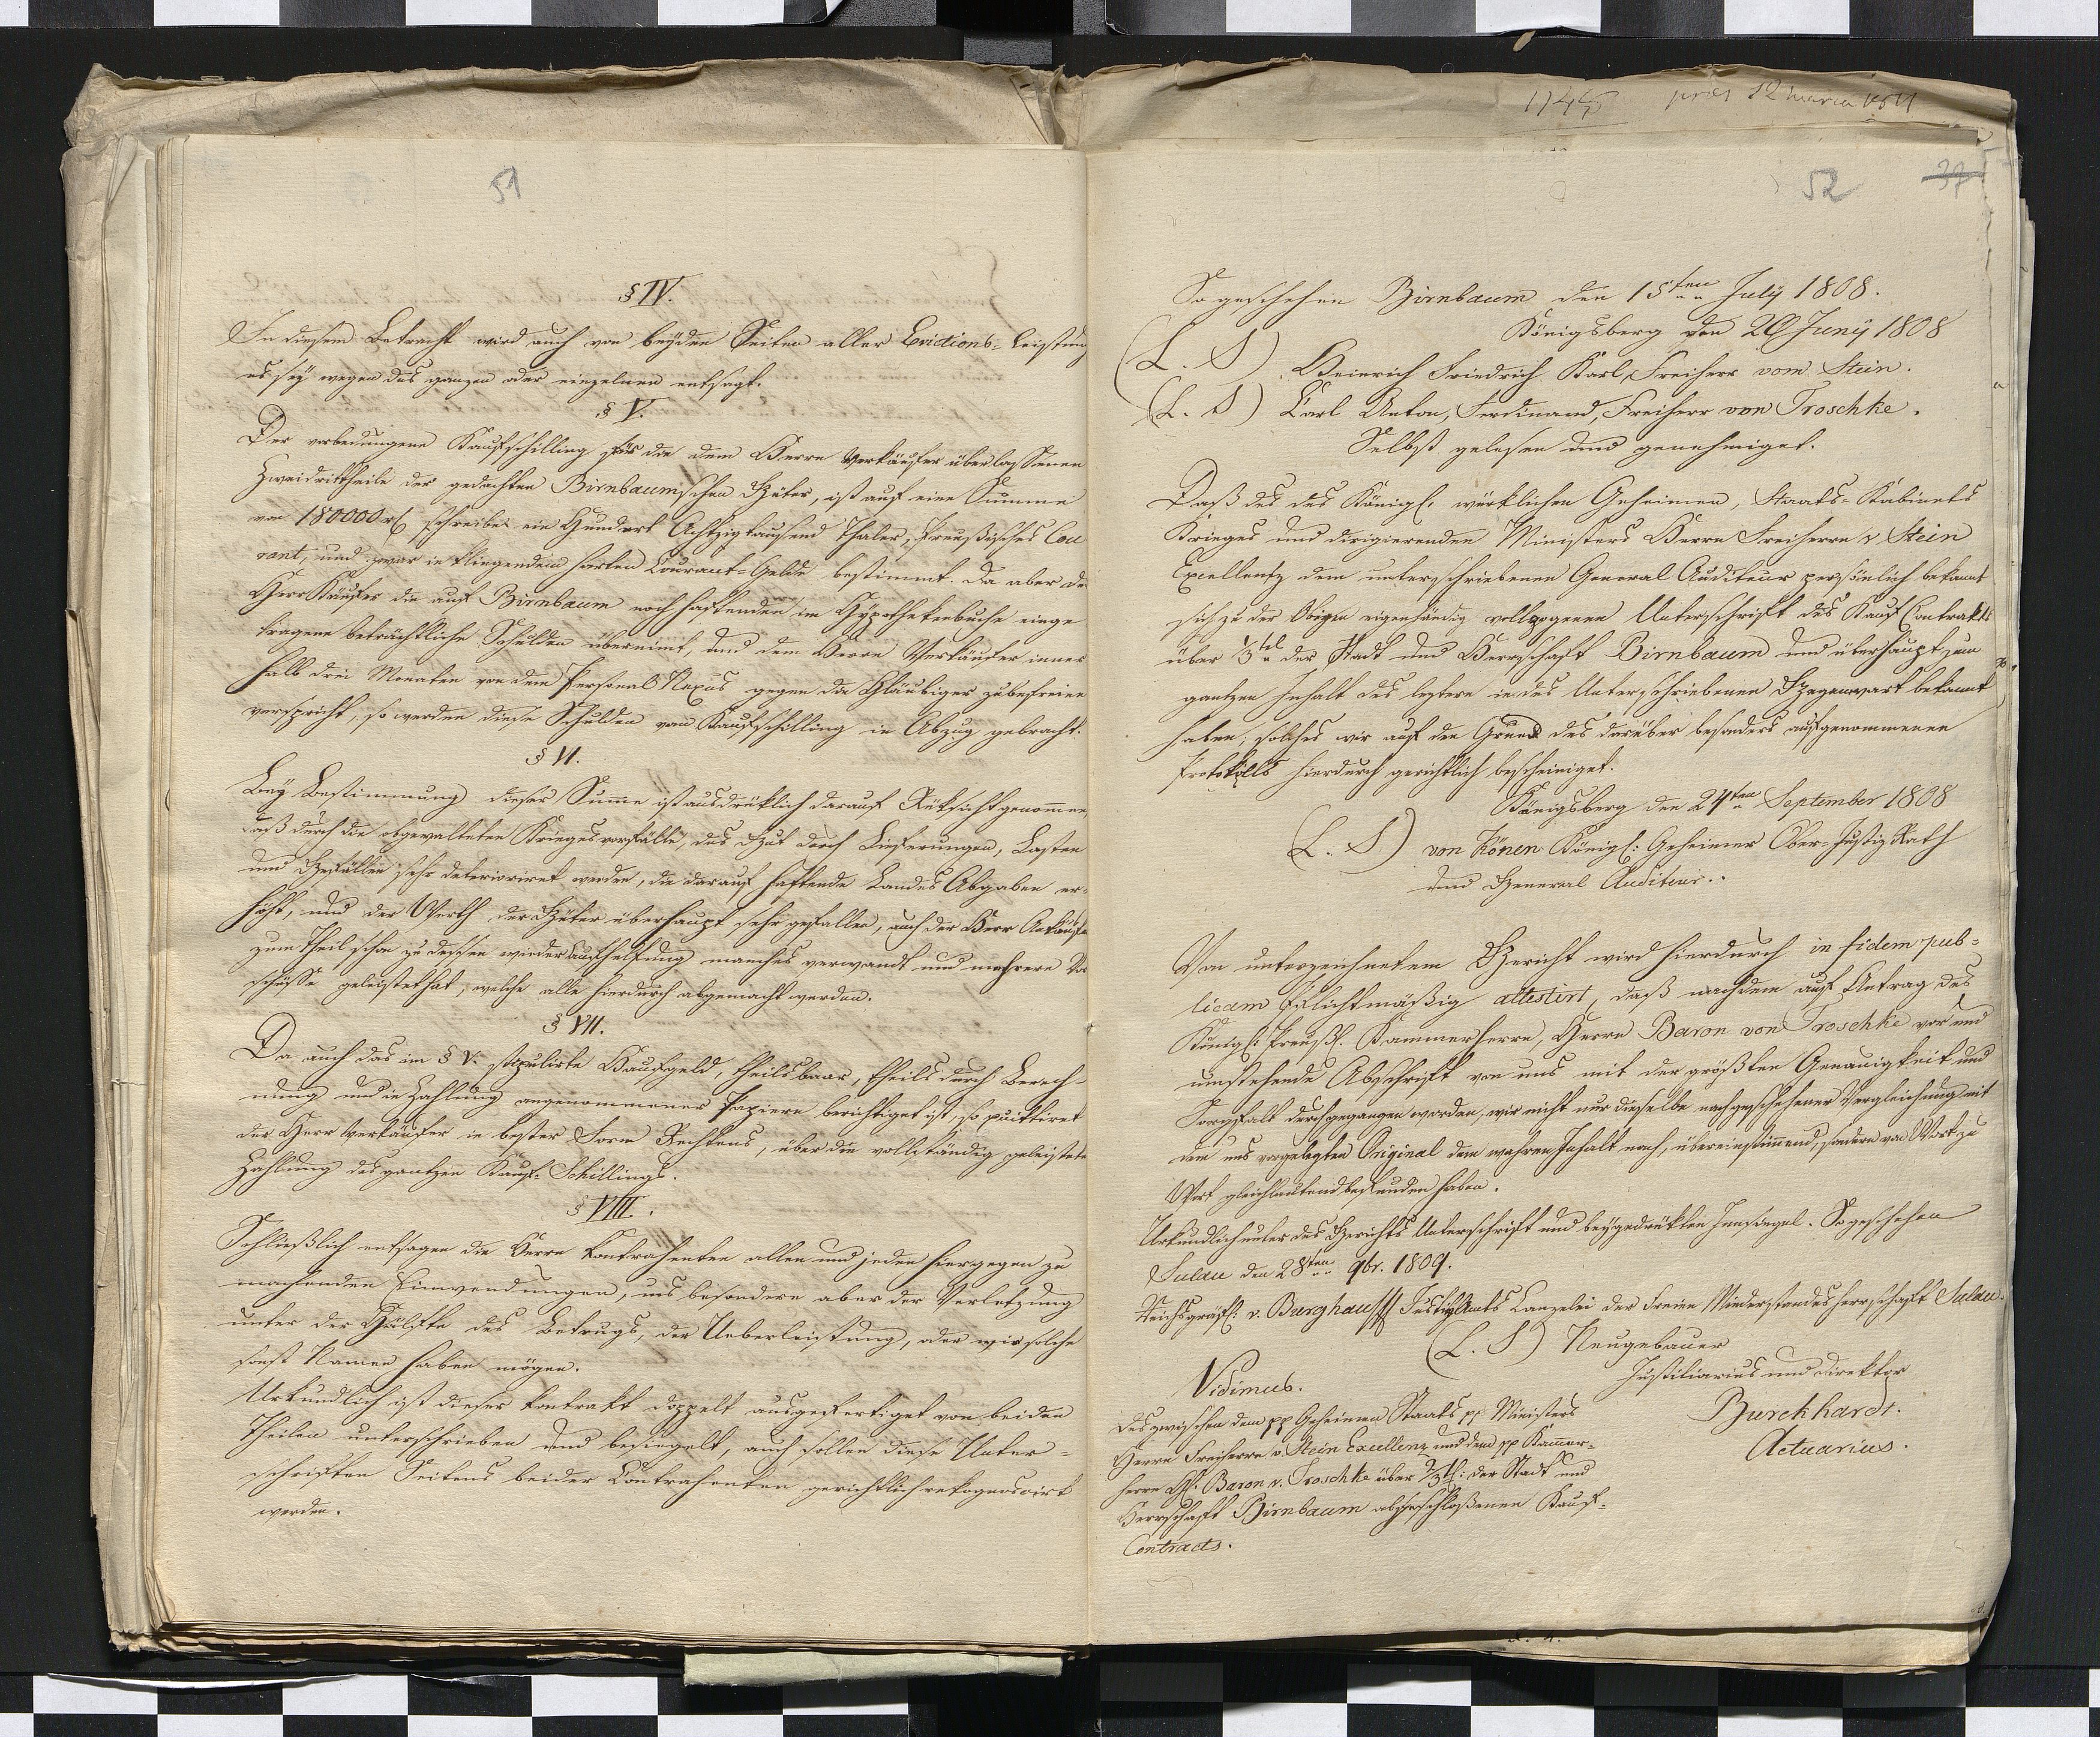 51
§ IV.
In diesem Betracht wird auch von beyden Seiten aller Evictions-Leistung
es sey wegen des ganzen oder einzelnen entsagt.
§ V.
Der verbedungene Kaufschilling für die dem Herrn Verkäufer überlassenen
Zweidrittheile der gedachten Birnbaumschen Güter, ist auf eine Summe
von 180000 rtl schreibe ein Hundert Achtzigtausend Thaler, Preußisches Cou
rant, und zwar in klingendem harten Courant-Gelde bestimmt. Da aber der
Herr Käufer die auf Birnbaum noch haftenden im Hypothekenbuche einge
tragene beträchtliche Schulden übernimt, und dem Herrn Verkäufer inner
halb drei Monaten von dem Personal Nexus gegen die Gläubiger zubefreien
verspricht, so werden diese Schulden vom Kaufschilling in Abzug gebracht.
§ VI.
Bey Bestimmung dieser Summe ist ausdrüklich darauf Rüksicht genommen,
daß durch die obgewalteten Kriegesvorfälle, das Gut durch Lieferungen, Lasten
und Gefällen sehr deterioriret worden, die darauf haftende Landes Abgaben er-
höht, und der Werth der Güter überhaupt sehr gefallen, auch der Herr Ankäufer
zum Theil schon zu dessen wieder Aufhelfung manches verwandt und mehrere Vor
schüsse geleistet hat, welche alle hierdurch abgemacht werden.
§ VII.
Da auch das im § V. stipulirte Kaufgeld, theils baar, theils durch Berech-
nung und in Zahlung angenommener Papiere berichtiget ist, so quittiret
der Herr Verkäufer in bester Form Rechtens, über die vollständig geleistete
Zahlung des gantzen Kauf-Schillings.
§ VIII.
Schließlich entsagen die Herrn Kontrahenten allen und jeden hiergegen zu
machenden Einwendungen, ins besondere aber der Verletzung
unter der Hälfte des Betrugs, der Ueberleistung, oder wie solche
sonst Namen haben mögen.
Urkundlich ist dieser Kontrakt doppelt ausgefertiget von beiden
Theilen unterschrieben und besiegelt, auch sollen diese Unter-
schriften Seitens beider Contrahenten gerichtlich rekognoscirt
werden.
52
37
So geschehen Birnbaum den 15ten July 1808.
Königsberg den 20 Juny 1808
(L. S) Heinrich Friedrich Karl, Freiherr vom Stein.
(L. S) Carl Anton, Ferdinand, Freiherr von Troschke.
Selbst gelesen und genehmiget.
Daß des des Königl. würklichen Geheimen, Staats-Kabinets
Krieges und dirigierenden Ministers Herrn Freiherrn v. Stein
Excellentz dem unterschriebenen General Auditeur persönlich bekannt
sich zu der Obigen eigenhändig vollzogenen Unterschrift des Kauf Contrakts
über 2/3tel der Stadt und Herrschaft Birnbaum und überhaupt zum
gantzen Inhalt des leztern in des Unterschriebenen Gegenwart bekannt
haben, solches wir auf den Grund des darüber besonders aufgenommenen
Protokolls hierdurch gerichtlich bescheiniget.
Königsberg den 24ten September 1808
(L. S) von Könen Königl: Geheimer Ober-Justiz Rath
und General Auditeur.
Von unterzeichnetem Gericht wird hierdurch in fidem pub-
licam pflichtmäßig attestirt, daß nachdem auf Antrag des
Königl: Preußs. Kammerherrn, Herrn Baron von Troschke vor und
umstehende Abschrift von uns mit der größten Genauigkeit und
Sorgfalt durchgegangen worden, wir nicht nur dieselbe nach geschehener Vergleichung mit
dem uns vorgelegten Original dem wahren Inhalt nach, übereinstimmend, sondern von Wort zu
Wort gleichlautend befunden haben.
Urkundlich unter des Gerichts Unterschrift und beygedrükten Innsiegel. So geschehen
Sulau den 28ten 9br. 1809.
Reichsgräfl: v. Burghauss Justiz Amts Canzelei der Freien Minderstandesherrschaft Sulau.
(L. S) Neugebauer
Justitiarius und Direktor
Burckhardt.
Actuarius.
Vidimus.
des zwischen dem pp Geheimen Staats pp Ministers
Herrn Freiherrn v. Stein Excellenz und dem pp Kammer-
herrn H. Baron v. Troschke über 2/3tl: der Stadt und
Herrschaft Birnbaum abgeschloßenen Kauf-
Contracts.